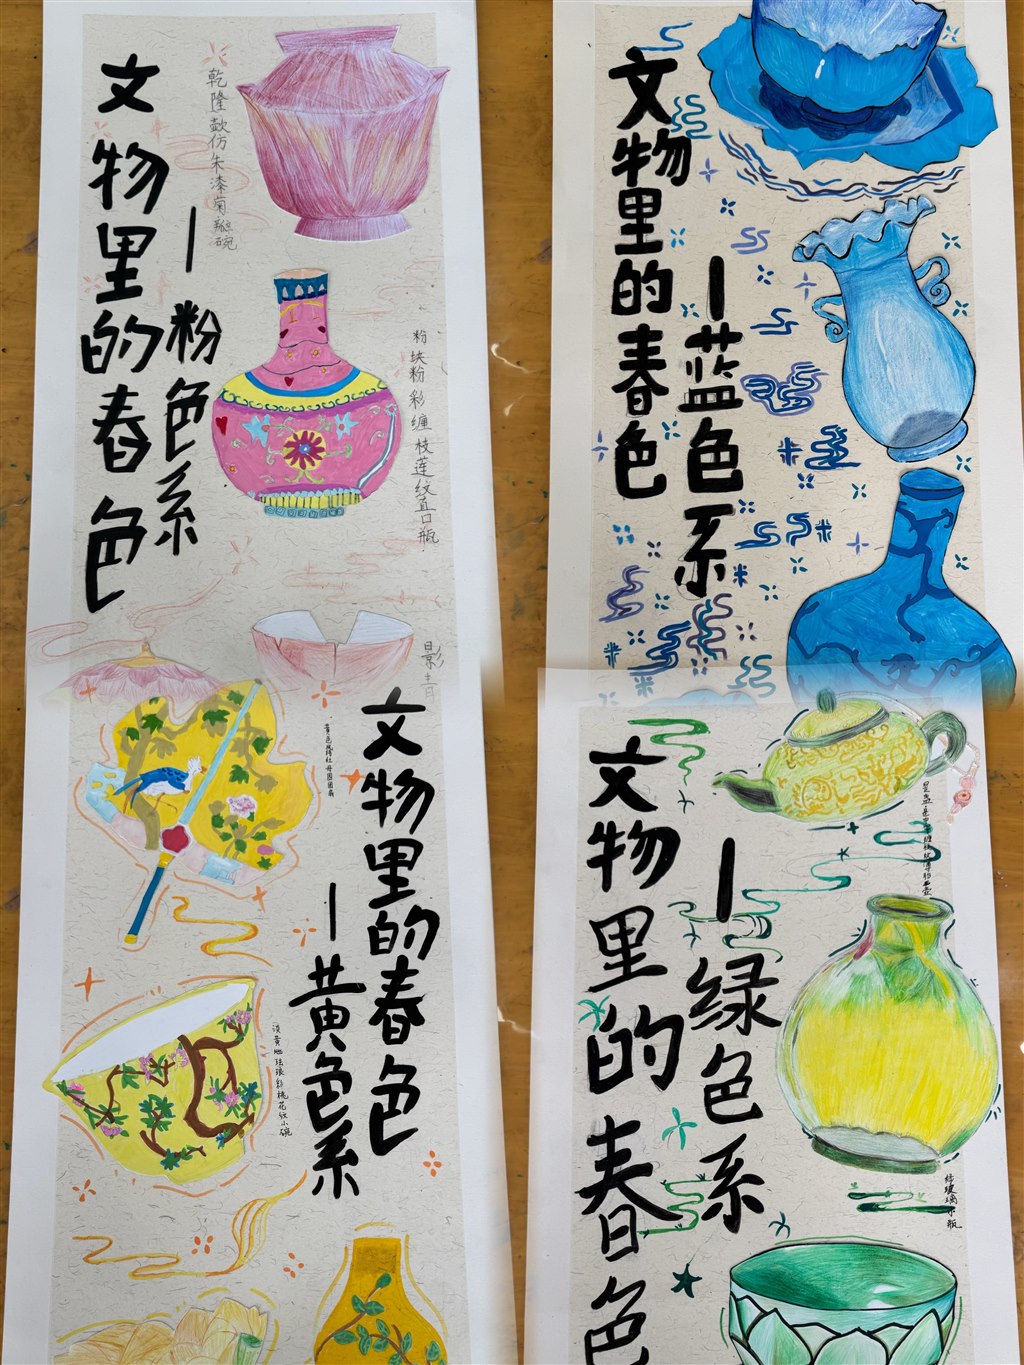 文物里的春色
—粉色系
乾隆款仿朱漆菊瓣碗
粉块粉彩缠枝莲纹直口瓶
影青
文物里的春色
—蓝色系
文物里的春色
—黄色系
淡黄地珐琅彩桃花纹小碗
文物里的春色
—绿色系